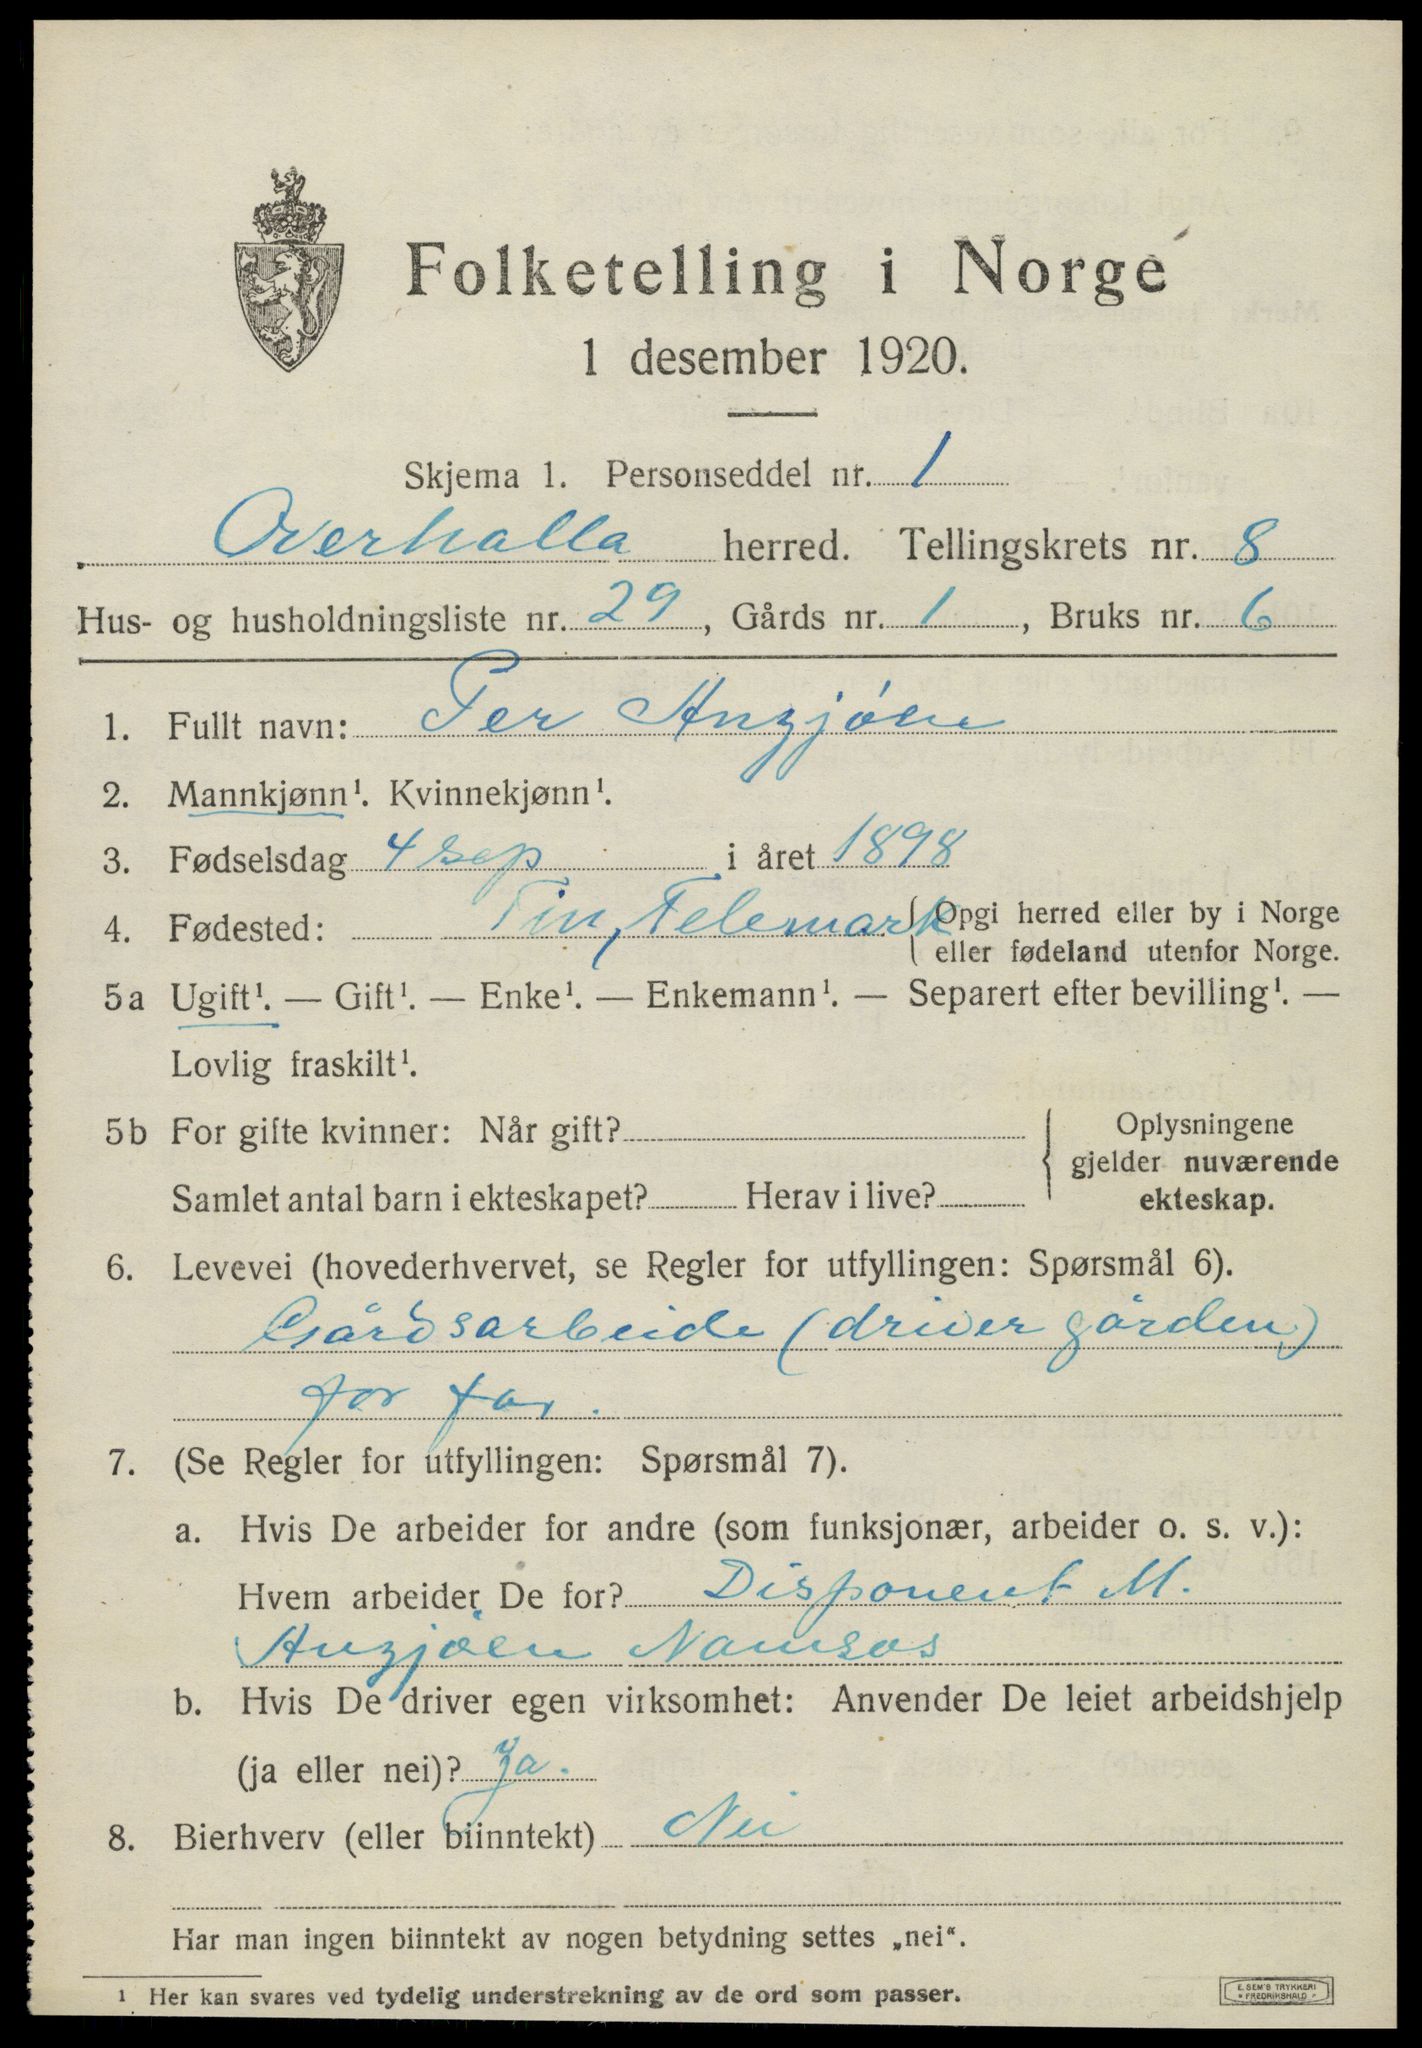 Folketelling i Norge
1 desember 1920.
Skjema 1. Personseddel nr. 1
Overhalla herred. Tellingskrets nr. 8
Hus- og husholdningsliste nr. 29, Gårds nr. 1, Bruks nr. 6
1. Fullt navn: Per Anzjøen
2. Mannkjønn¹. Kvinnekjønn¹.
3. Fødselsdag 4 sep i året 1898
4. Fødested: Tin, Telemark { Opgi herred eller by i Norge
eller fødeland utenfor Norge.
5a Ugift¹. — Gift¹. — Enke¹. — Enkemann¹. — Separert efter bevilling¹. —
Lovlig fraskilt¹.
5b For gifte kvinner: Når gift?
Samlet antal barn i ekteskapet? Herav i live?
{ Oplysningene
gjelder nuværende
ekteskap.
6. Levevei (hovederhvervet, se Regler for utfyllingen: Spørsmål 6).
Gårdsarbeide (driver gården)
for far.
7. (Se Regler for utfyllingen: Spørsmål 7).
a. Hvis De arbeider for andre (som funksjonær, arbeider o. s. v.):
Hvem arbeider De for? Disponent M.
Anzjøen Namsos
b. Hvis De driver egen virksomhet: Anvender De leiet arbeidshjelp
(ja eller nei)? Ja.
8. Bierhverv (eller biinntekt) Nei
Har man ingen biinntekt av nogen betydning settes „nei“.
¹ Her kan svares ved tydelig understrekning av de ord som passer.
E. SEM'S TRYKKERI
FREDRIKSHALD